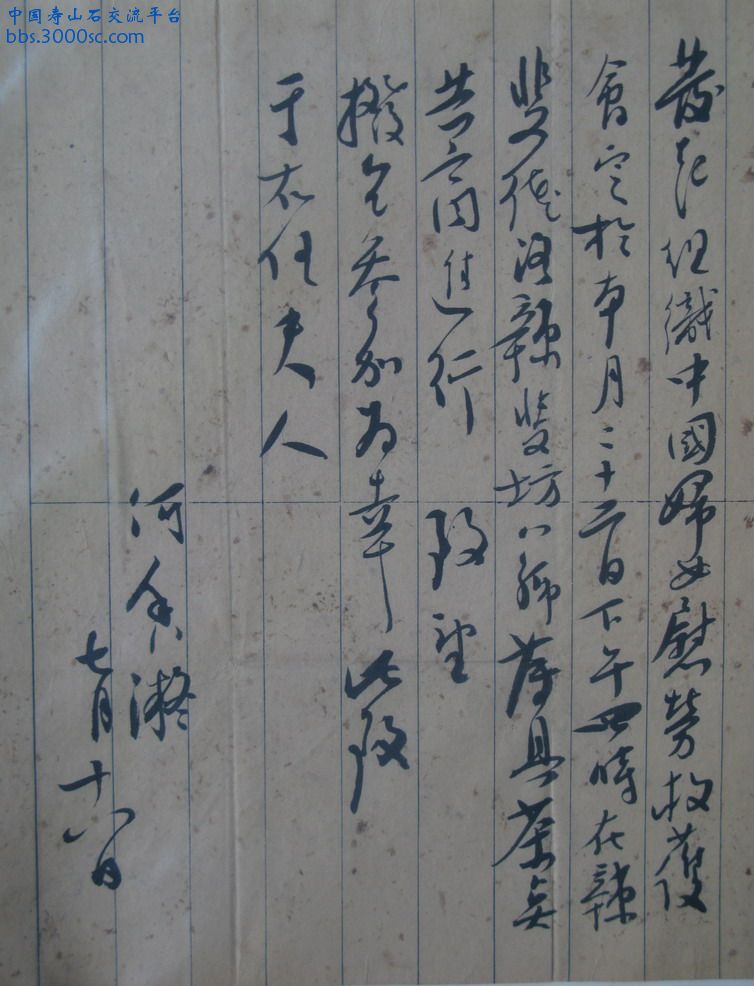 中国寿山石交流平台
bbs.3000sc.com
發起組織中國婦女慰勞救護
會定於本月二十二日下午四時在辣
斐德路辣斐坊八號薄具茶点
共商進行 致望
撥冗參加為幸此致
于右任夫人
何香凝
七月十八日